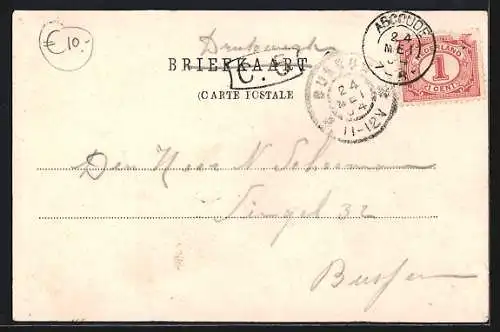 € 10,-
Drukwerk
BRIEFKAART
(CARTE POSTALE
C. G
ABCOUDE
24
MEI
NEDERLAND
1
1 CENT
BUSSUM
24
MEI
04
11-12V
Den Heer N
Singel 32
Bussum